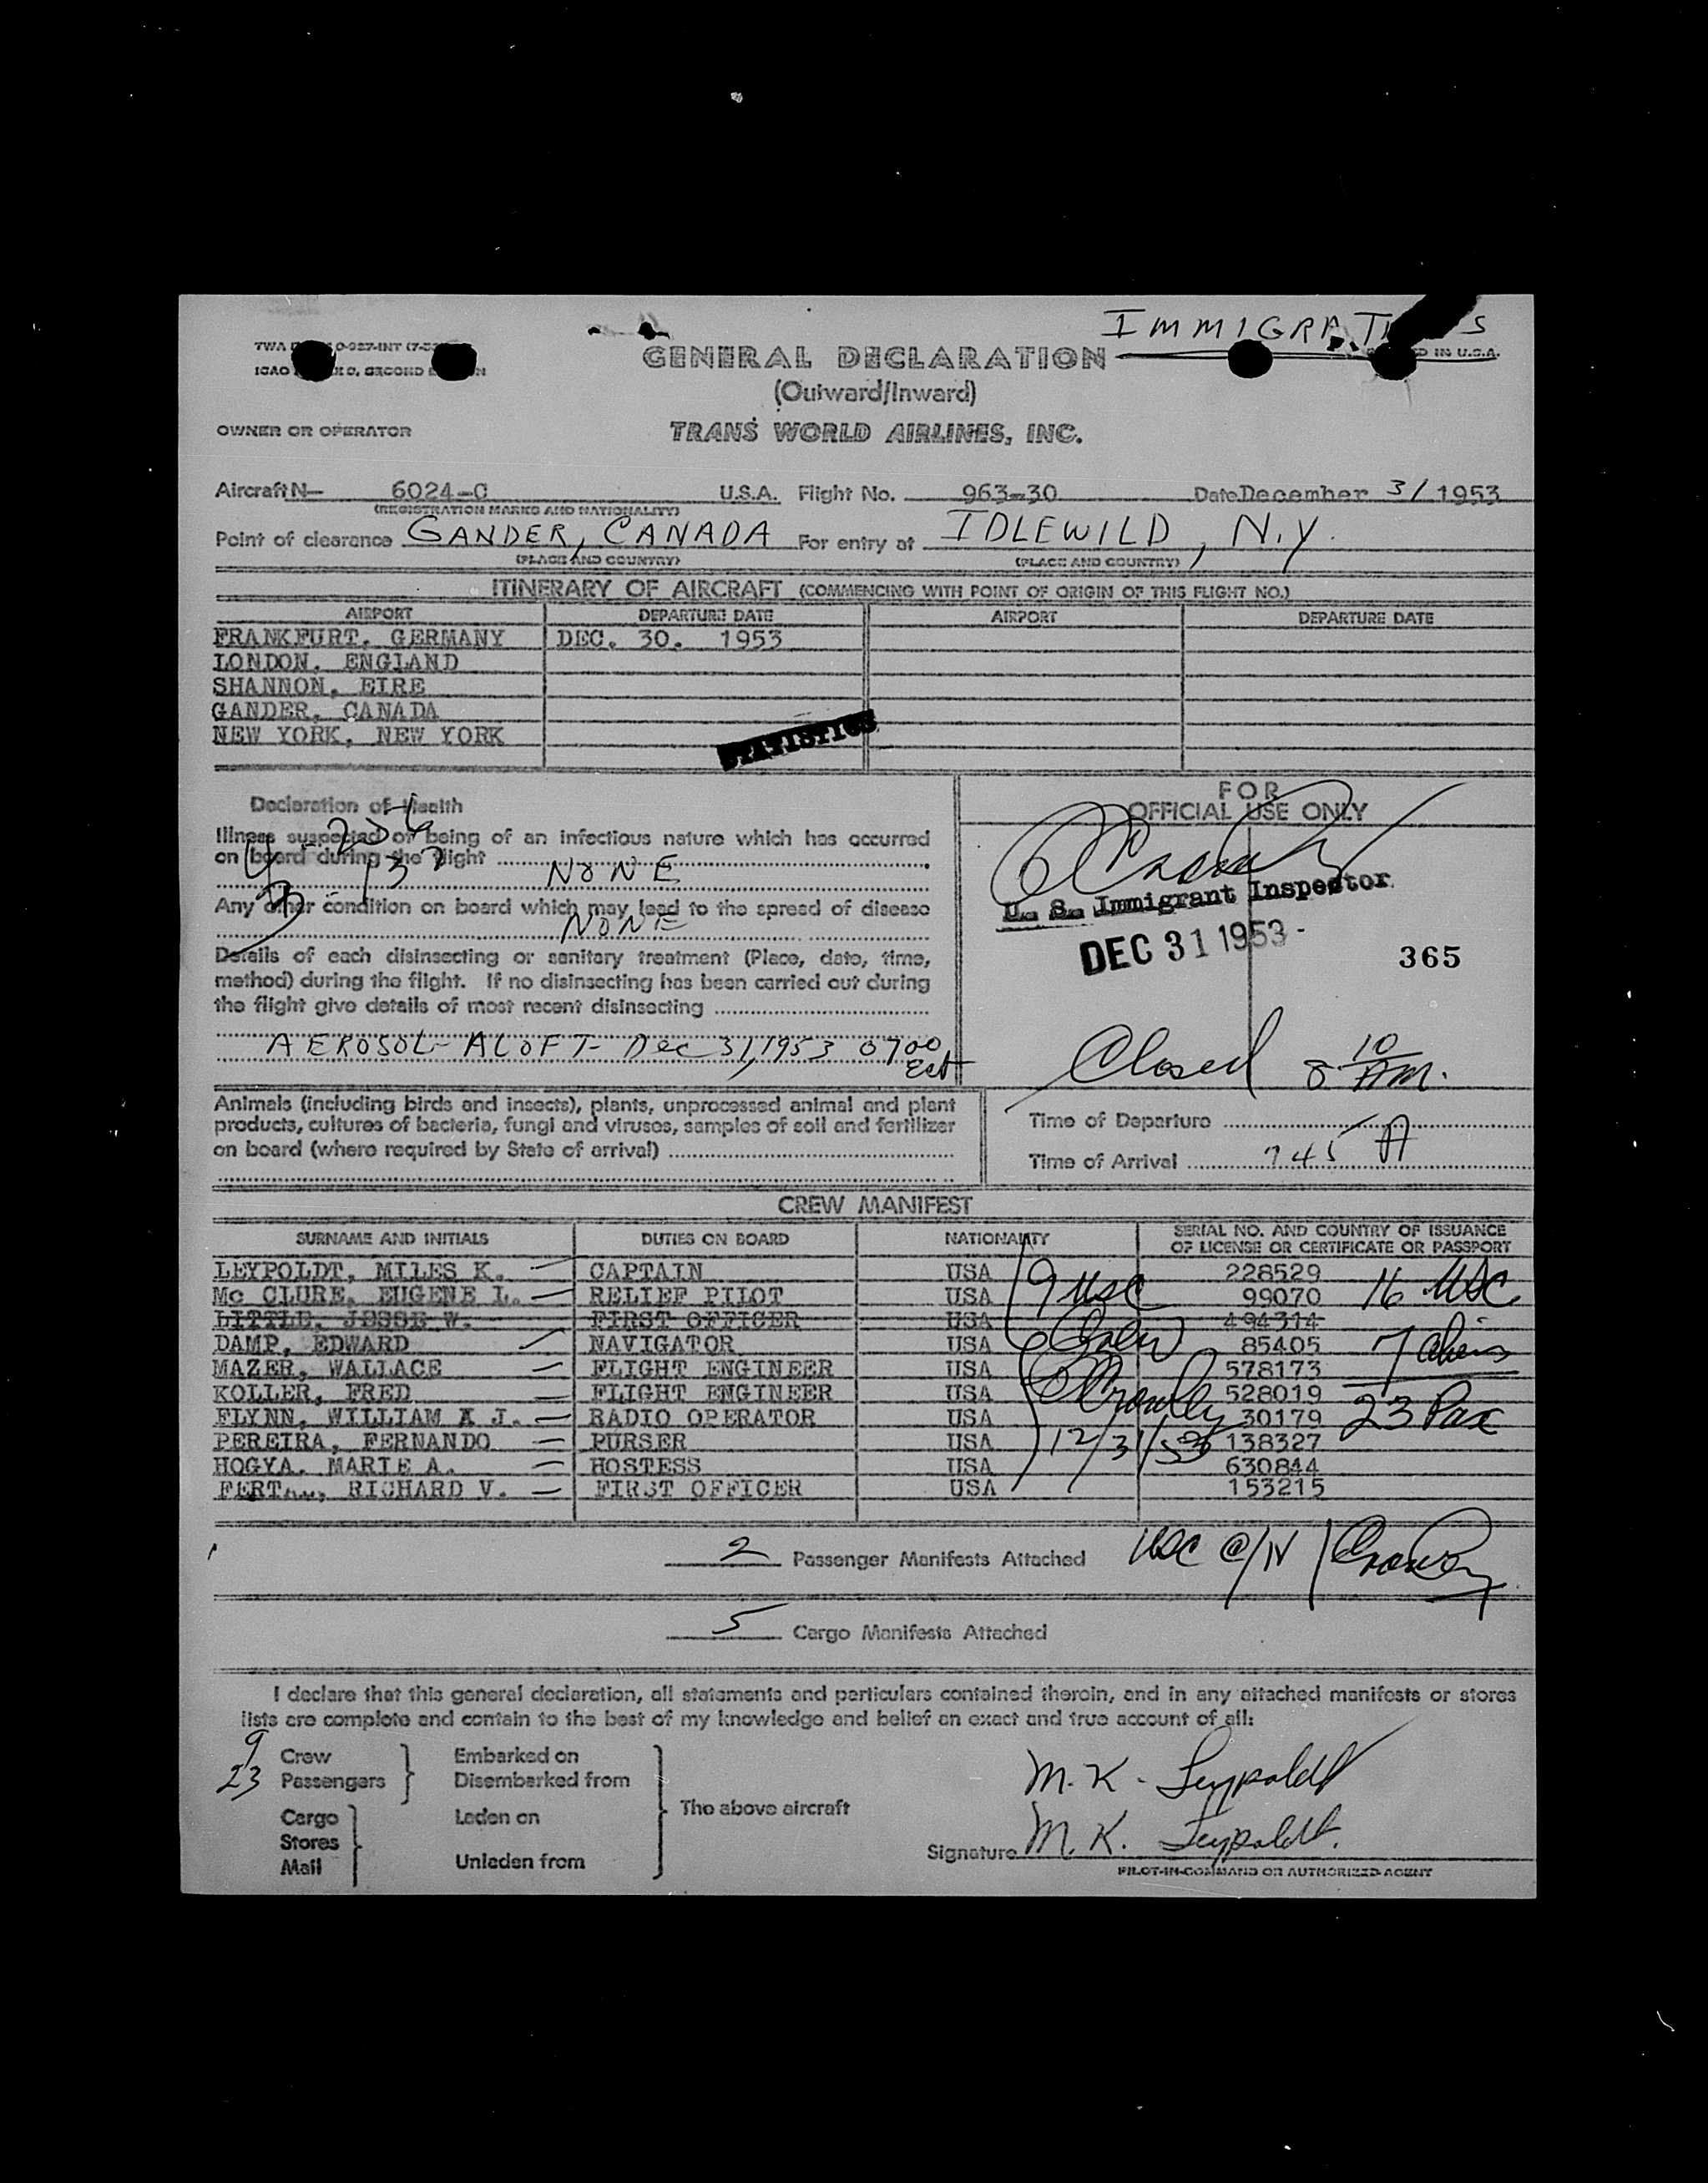 IMMIGRATI S
TWA 0-927-INT (7-5
D IN U.S.A.
GENERAL DECLARATION
ICAO O, SECOND
(Outward/Inward)
OWNER OR OPERATOR
TRANS WORLD AIRLINES, INC.
Aircraft N— 6024-C U.S.A. Flight No. 963-30 Date December 31 1953
(REGISTRATION MARKS AND NATIONALITY)
Point of clearance GANDER, CANADA For entry at IDLEWILD, N.Y.
(PLACE AND COUNTRY) (PLACE AND COUNTRY)
ITINERARY OF AIRCRAFT (COMMENCING WITH POINT OF ORIGIN OF THIS FLIGHT NO.)
AIRPORT DEPARTURE DATE AIRPORT DEPARTURE DATE
FRANKFURT, GERMANY DEC. 30. 1953
LONDON, ENGLAND
SHANNON, EIRE
GANDER, CANADA
NEW YORK, NEW YORK
STATISTICS
Declaration of Health
Illness suspected of being of an infectious nature which has occurred
on board during the flight NONE
Any other condition on board which may lead to the spread of disease
NONE
Details of each disinsecting or sanitary treatment (Place, date, time,
method) during the flight. If no disinsecting has been carried out during
the flight give details of most recent disinsecting
AEROSOL- ALOFT- Dec 31, 1953 0700
Est
FOR
OFFICIAL USE ONLY
U. S. Immigrant Inspector
DEC 31 1953 -
365
Closed 8 10 AM.
Animals (including birds and insects), plants, unprocessed animal and plant
products, cultures of bacteria, fungi and viruses, samples of soil and fertilizer
on board (where required by State of arrival)
Time of Departure
Time of Arrival 745 A
CREW MANIFEST
SURNAME AND INITIALS DUTIES ON BOARD NATIONALITY SERIAL NO. AND COUNTRY OF ISSUANCE
OF LICENSE OR CERTIFICATE OR PASSPORT
LEYPOLDT, MILES K. CAPTAIN USA 228529
Mc CLURE, EUGENE L. RELIEF PILOT USA 99070
LITTLE, JESSE W. FIRST OFFICER USA 494314
DAMP, EDWARD NAVIGATOR USA 85405
MAZER, WALLACE FLIGHT ENGINEER USA 578173
KOLLER, FRED FLIGHT ENGINEER USA 528019
FLYNN, WILLIAM A J. RADIO OPERATOR USA 30179
PEREIRA, FERNANDO PURSER USA 138327
HOGYA, MARIE A. HOSTESS USA 630844
RICHARD V. FIRST OFFICER USA 153215
9 USC
Crew
Crowley
12/31/53
16 USC
7 aliens
23 Pax
2 Passenger Manifests Attached USC @/N Crowley
5 Cargo Manifests Attached
I declare that this general declaration, all statements and particulars contained therein, and in any attached manifests or stores
lists are complete and contain to the best of my knowledge and belief an exact and true account of all:
9 Crew
23 Passengers
Embarked on
Disembarked from
Cargo
Stores
Mail
Laden on
Unladen from
The above aircraft
M. K. Leypoldt
Signature M. K. Leypoldt.
PILOT-IN-COMMAND OR AUTHORIZED AGENT